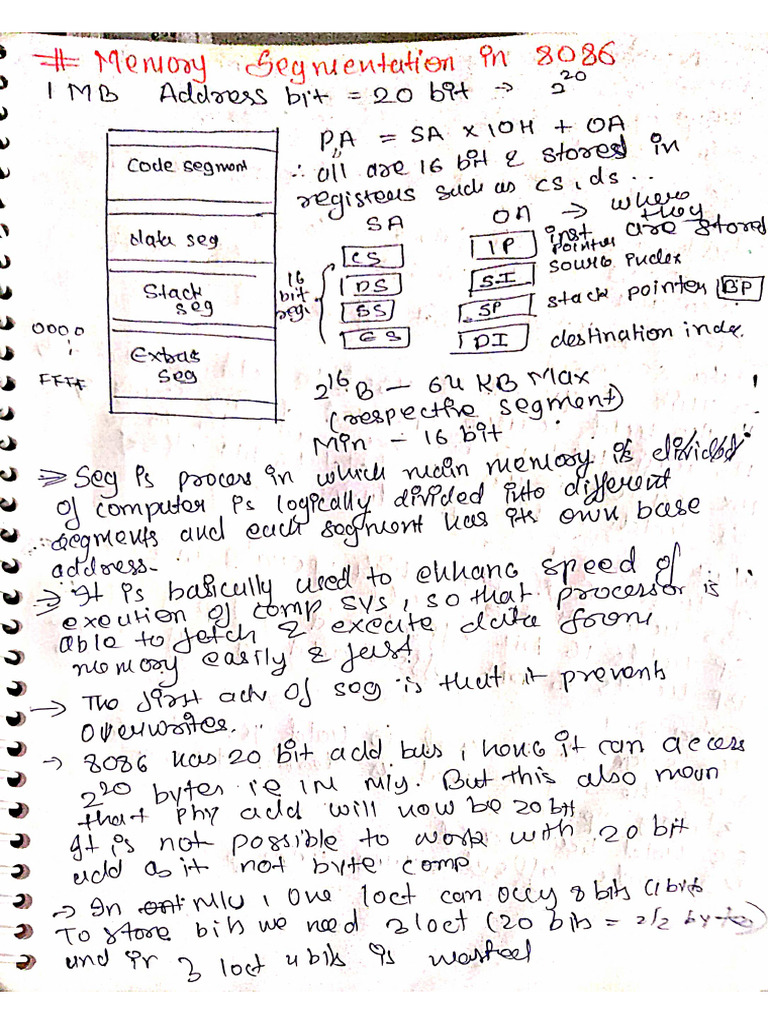 # Memory Segmentation in 8086
1 MB Address bit = 20 bit → 2^20
PA = SA × 10H + OA
∴ all are 16 bit & stored in
registers such as cs, ds ..
SA OA → where they
are stored
Code segment
data seg
Stack
seg
Extra
seg
0000
FFFF
16
bit
reg
CS
DS
SS
ES
IP inst pointer
SI
SP stack pointer BP
DI destination inde.
2^16 B – 64 KB Max
(respective segment)
Min – 16 bit
⇒ Seg is process in which main memory is divided
of computer is logically divided into different
segments and each segment has its own base
address.
⇒ It is basically used to enhanc speed of
exeution of comp sys, so that processor is
able to fetch & execute data from
memory easily & fast.
→ The first adv of seg is that it prevents
overwrites.
→ 8086 has 20 bit add bus, it can access
2^20 bytes ie 1M m/y. But this also mean
that phy add will now be 20 bit
It is not possible to work with 20 bit
add as it not byte comp
→ In m/y, one loct can occy 8 bits (1 byt
To store bits we need 3 loct (20 bits = 2 1/2 byte)
and in 3 loct 4 bits is wasted